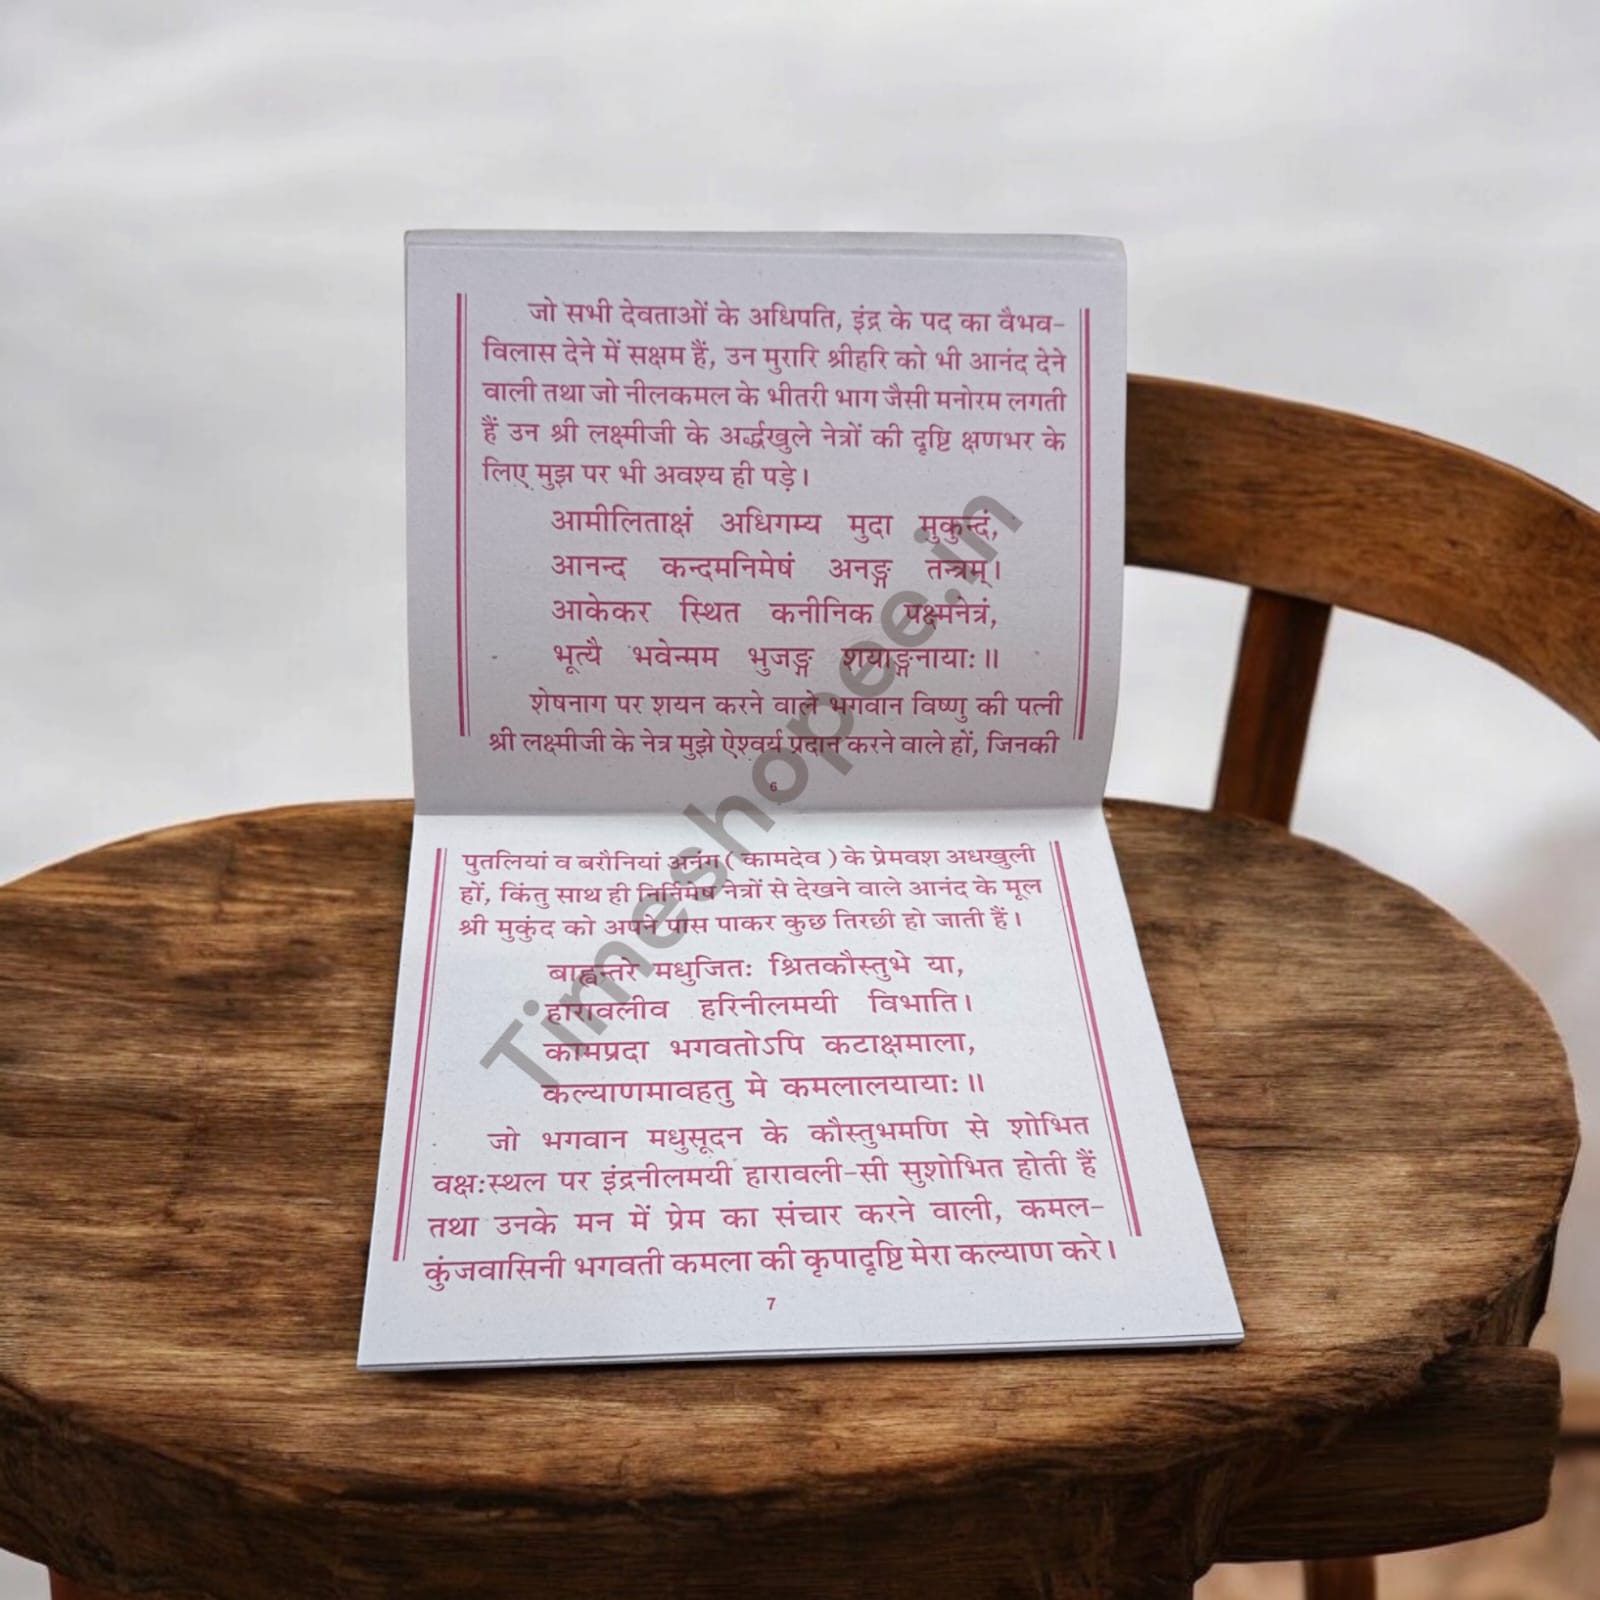 जो सभी देवताओं के अधिपति, इंद्र के पद का वैभव-
विलास देने में सक्षम हैं, उन मुरारि श्रीहरि को भी आनंद देने
वाली तथा जो नीलकमल के भीतरी भाग जैसी मनोरम लगती
हैं उन श्री लक्ष्मीजी के अर्द्धखुले नेत्रों की दृष्टि क्षणभर के
लिए मुझ पर भी अवश्य ही पड़े।
आमीलिताक्षं अधिगम्य मुदा मुकुन्दं,
आनन्द कन्दमनिमेषं अनङ्ग तन्त्रम्।
आकेकर स्थित कनीनिक पक्ष्मनेत्रं,
भूत्यै भवेन्मम भुजङ्ग शयाङ्गनायाः॥
शेषनाग पर शयन करने वाले भगवान विष्णु की पत्नी
श्री लक्ष्मीजी के नेत्र मुझे ऐश्वर्य प्रदान करने वाले हों, जिनकी
6
पुतलियां व बरौनियां अनंग ( कामदेव ) के प्रेमवश अधखुली
हों, किंतु साथ ही निर्निमेष नेत्रों से देखने वाले आनंद के मूल
श्री मुकुंद को अपने पास पाकर कुछ तिरछी हो जाती हैं।
बाह्वन्तरे मधुजितः श्रितकौस्तुभे या,
हारावलीव हरिनीलमयी विभाति।
कामप्रदा भगवतोऽपि कटाक्षमाला,
कल्याणमावहतु मे कमलालयायाः॥
जो भगवान मधुसूदन के कौस्तुभमणि से शोभित
वक्षःस्थल पर इंद्रनीलमयी हारावली-सी सुशोभित होती हैं
तथा उनके मन में प्रेम का संचार करने वाली, कमल-
कुंजवासिनी भगवती कमला की कृपादृष्टि मेरा कल्याण करे।
7
Timeshopee.in